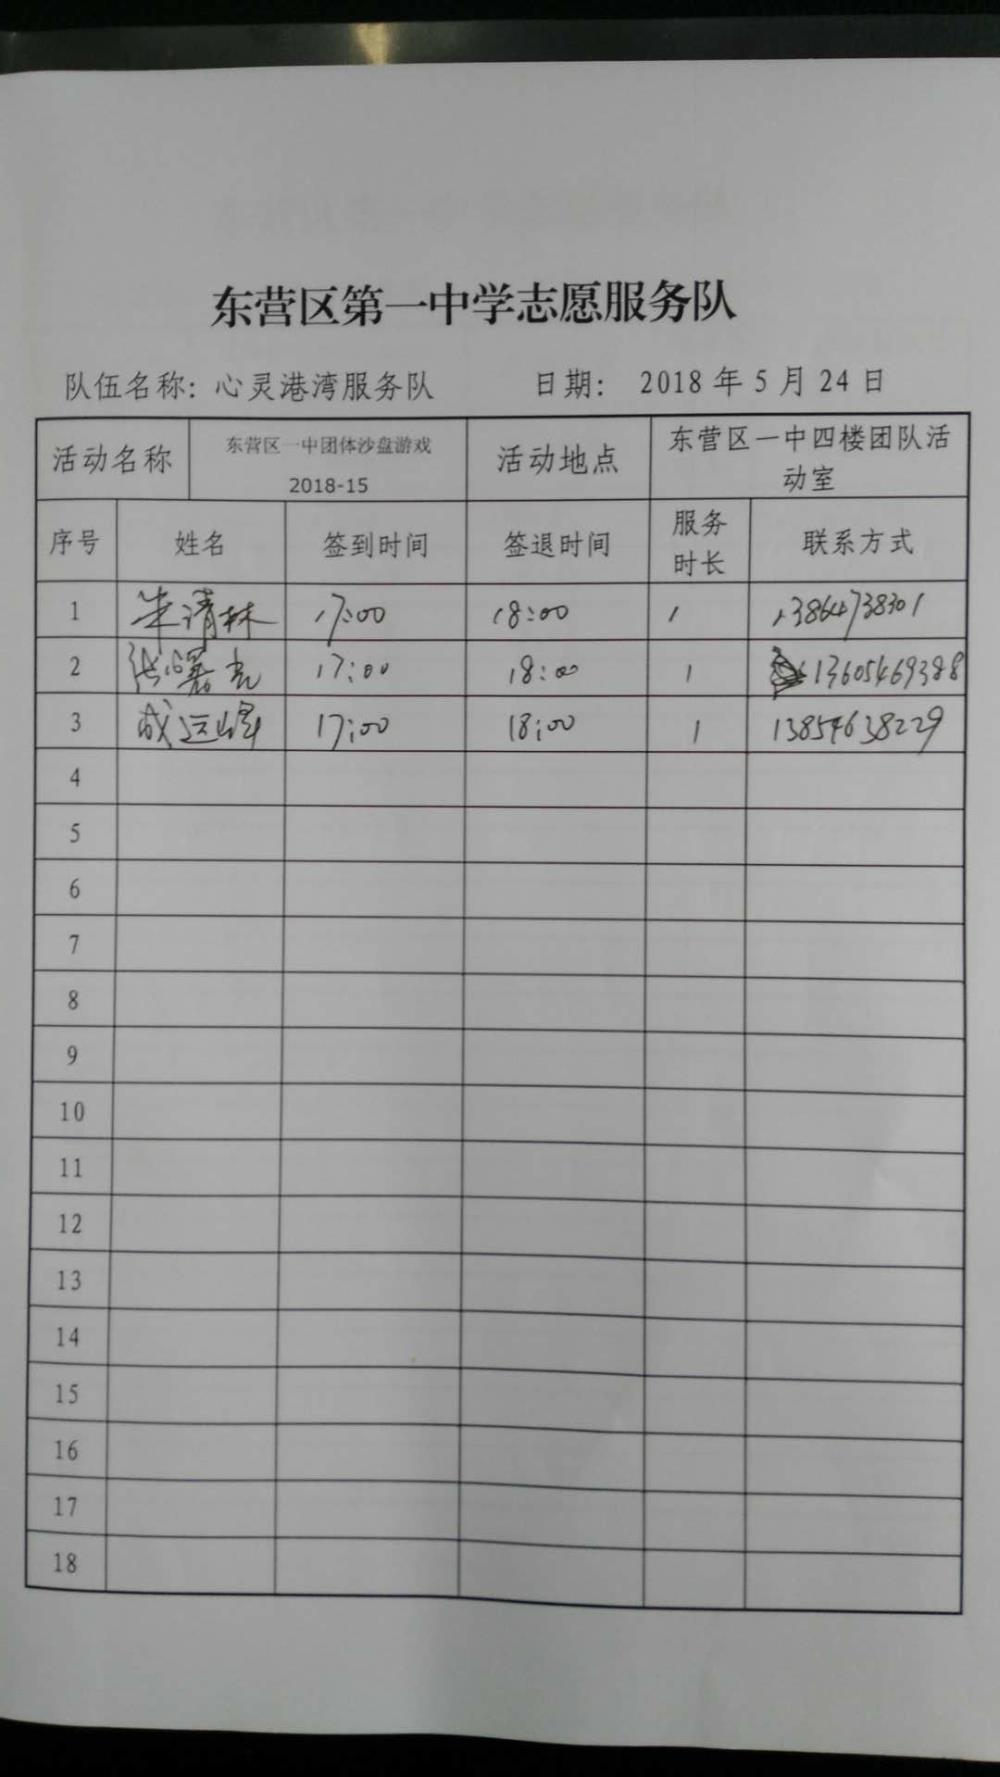 东营区第一中学志愿服务队
队伍名称：心灵港湾服务队 日期： 2018 年 5 月 24 日
活动名称 东营区一中团体沙盘游戏 2018-15 活动地点 东营区一中四楼团队活动室
序号 姓名 签到时间 签退时间 服务时长 联系方式
1 朱清林 17:00 18:00 1 13864738301
2 张曙光 17:00 18:00 1 13605469388
3 成运峰 17:00 18:00 1 13854638229
4
5
6
7
8
9
10
11
12
13
14
15
16
17
18